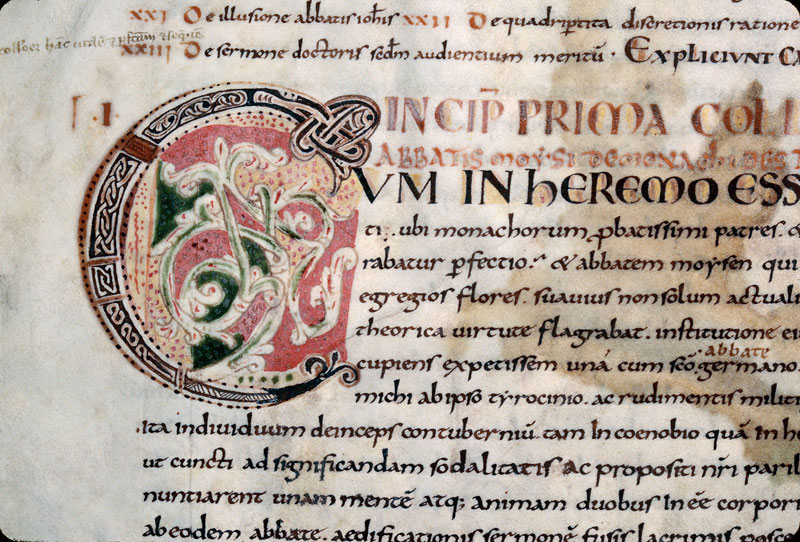 XXI De illusione abbatis ioħis XXII De quadriptita discretionis ratione
XXIII De sermone doctoris sedm̄ audientium meritū · EXPLICIUNT CA
.I. INCIP̄ PRIMA COLL
ABBATIS MOYSI DE MONACHI DEST
CUM IN hEREMO ESS
ti. ubi monachorum ꝓbatissimi patres. &
rabatur ꝑfectio. & abbatem moysen qui
egregios flores. suauius non solum actuali
theorica uirtute flagrabat. institutione ei
abbate
cupiens expetissem unā cum scō. germano.
michi ab ipso tyrocinio. ac rudimentis militi
ita indiuiduum deinceps contuberniū. tam In coenobio quā in he
ut cuncti ad significandam sodalitatis ac propositi nr̄i paril
nuntiarent unam mentē atq; animam duobus In ēē corpori
ab eodem abbate. aedificationis sermonē fusis lacrimis posce